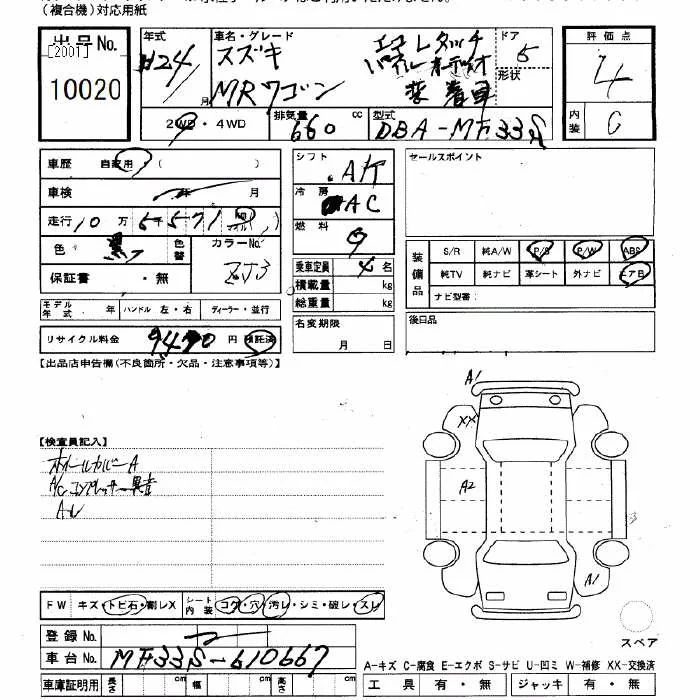 (複合機)対応用紙
出品No.
[200T]
10020
年式
H24
月
車名・グレード
スズキ
MRワゴン
エコ Lタッチ
パネルオーディオ
装着車
ドア
5
形状
2WD・4WD
排気量
660 cc
型式
DBA-MF33S
評価点
4
内装
C
車歴 自家用 ( )
車検 年 月
走行 10万 5千571 km マイル ( )
色 黒 色替 カラーNo. ZJ3
保証書 ・ 無
モデル年式 年 ハンドル 左・右 ディーラー・並行
リサイクル料金 9490 円 預託済
シフト A/T
冷房 AC
燃料 G
乗車定員 4 名
積載量 kg
総重量 kg
名変期限
月 日
セールスポイント
装備品
S/R 純A/W P/S P/W ABS
純TV 純ナビ 革シート 外ナビ エアB
ナビ型番:
後日品
【出品店申告欄(不良箇所・欠品・注意事項等)】
【検査員記入】
ホイールカバーA
A/Cコンプレッサー異音
A・U
A1
XX
A2
A1
スペア
FW キズ・トビ石・割レX
シート内装 コゲ・穴・汚レ・シミ・破レ・スレ
登録No.
車台No. MF33S-610667
車庫証明用 長さ cm 幅 cm 高さ cm
A-キズ C-腐食 E-エクボ S-サビ U-凹ミ W-補修 XX-交換済
工具 有・無 ジャッキ 有・無